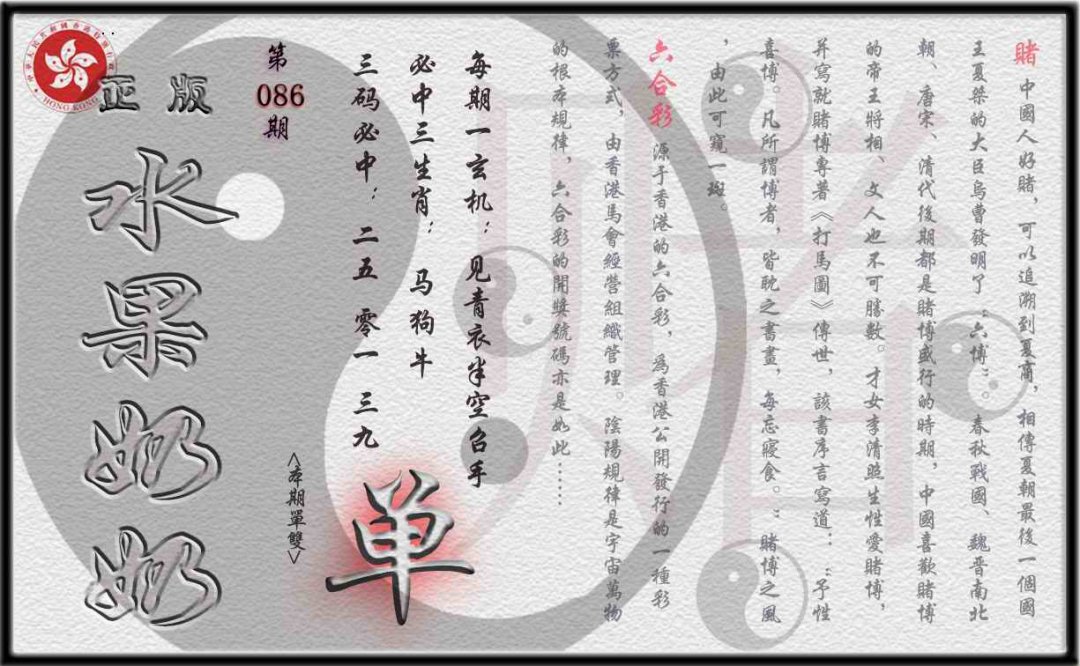 賭 中國人好賭，可以追溯到夏商，相傳夏朝最後一個國
王夏桀的大臣烏曹發明了“六博”。春秋戰國、魏晉南北
朝、唐宋、清代後期都是賭博盛行的時期，中國喜歡賭博
的帝王將相、文人也不可勝數。才女李清照生性愛賭博，
并寫就賭博專著《打馬圖》傳世，該書序言寫道：“予性
喜博。凡所謂博者，皆耽之書晝，每忘寢食。”賭博之風
，由此可窺一斑。
六合彩 源于香港的六合彩，為香港公開發行的一種彩
票方式，由香港馬會經營組織管理。陰陽規律是宇宙萬物
的根本規律，六合彩的開獎號碼亦是如此……
每期一玄机：见青衣半空召手
必中三生肖：马狗牛
三码必中：二五 零一 三九
单
<本期單雙>
第
086
期
正版
水果奶奶
HONG KONG